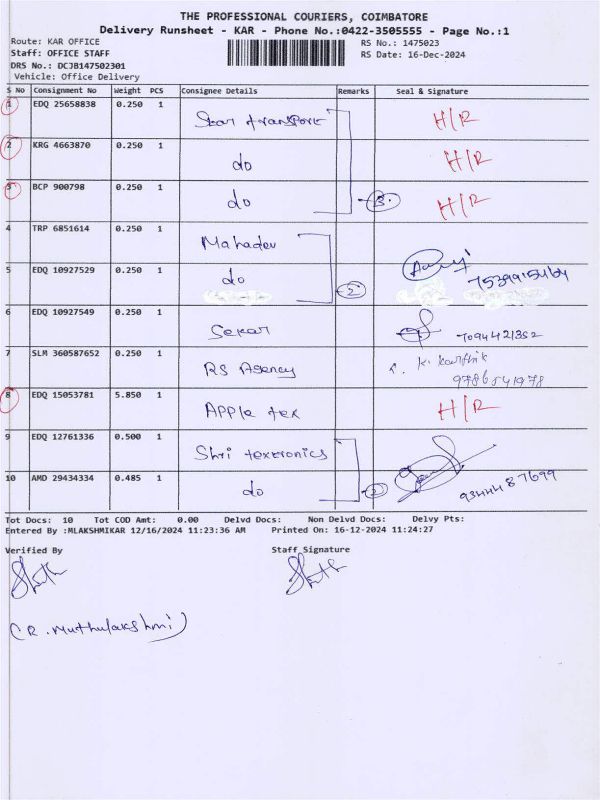 THE PROFESSIONAL COURIERS, COIMBATORE
Delivery Runsheet - KAR - Phone No.:0422-3505555 - Page No.:1
Route: KAR OFFICE RS No.: 1475023
Staff: OFFICE STAFF RS Date: 16-Dec-2024
DRS No.: DCJB147502301
Vehicle: Office Delivery
S No Consignment No Weight PCS Consignee Details Remarks Seal & Signature
1 EDQ 25658838 0.250 1 Star transport H/R
2 KRG 4663870 0.250 1 do H/R
3 BCP 900798 0.250 1 do 3. H/R
4 TRP 6851614 0.250 1 Mahadev
5 EDQ 10927529 0.250 1 do 2
6 EDQ 10927549 0.250 1 Sekar 7094421352
7 SLM 360587652 0.250 1 RS Agency K. Karthik
9786541978
8 EDQ 15053781 5.850 1 Apple tex H/R
9 EDQ 12761336 0.500 1 Shri textronics
10 AMD 29434334 0.485 1 do 2 9344487699
Tot Docs: 10 Tot COD Amt: 0.00 Delvd Docs: Non Delvd Docs: Delvy Pts:
Entered By :MLAKSHMIKAR 12/16/2024 11:23:36 AM Printed On: 16-12-2024 11:24:27
Verified By Staff Signature
(R. Muthulakshmi)